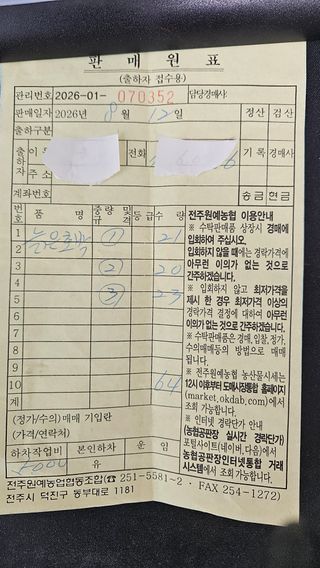 판 매 원 표
(출하자 접수용)
관리번호 2026-01- 070352 담당경매사:
판매일자 2026년 8 월 12 일 정 산 검 산
출하구분
출하자 이 전화 기 록 경매사
주 소
계좌번호 송 금 현 금
번호 품 명 중량및규격 등급 수 량
1 늙은호박 ① 21
2
3 ② 20
4
5 ③ 23
6
7
8
9
10 64
계
(정가/수의) 매매 기입란
(가격/연락처)
하차작업비 본인하차 운 임
5000 유
전주원예농협 이용안내
※ 수탁판매품 상장시 경매에 입회하여 주십시오.
입회하지 않을 때에는 경락가격에 아무런 이의가 없는 것으로 간주하겠습니다.
※ 입회하지 않고 최저가격을 제시 한 경우 최저가격 이상의 경락가격 결정에 대하여 아무런 이의가 없는 것으로 간주하겠습니다.
※ 수탁판매품은 경매, 입찰, 정가, 수의매매등의 방법으로 매매 됩니다.
※ 전주원예농협 농산물시세는 12시 이후부터 도매시장통합 홈페이지 (market.okdab.com)에서 조회 가능합니다.
※ 인터넷 경락단가 안내
(농협공판장 실시간 경락단가)
포털사이트(네이버,다음)에서 농협공판장인터넷통합 거래 시스템에서 조회 가능합니다.
전주원예농업협동조합(☎ 251-5581~2 · FAX 254-1272)
전주시 덕진구 동부대로 1181